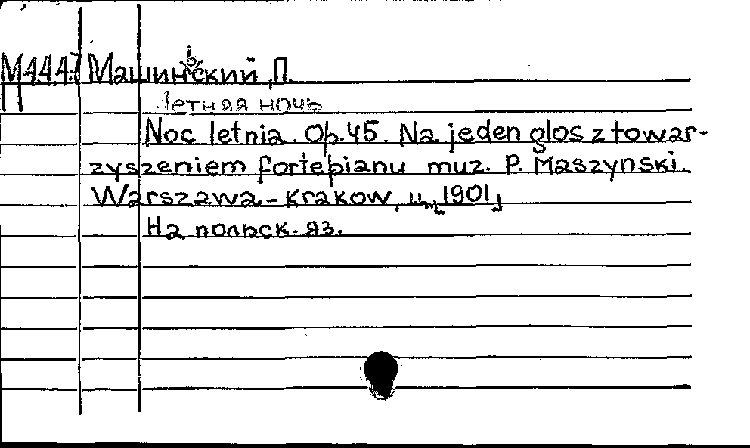 М4447 Машиньский, П.
П
Летная ночь
Noc letnia. Op.45. Na jeden glos z towar-
zyszeniem fortepianu muz. P. Maszynski.
Warszawa-Krakow, 1901,
На польск. яз.